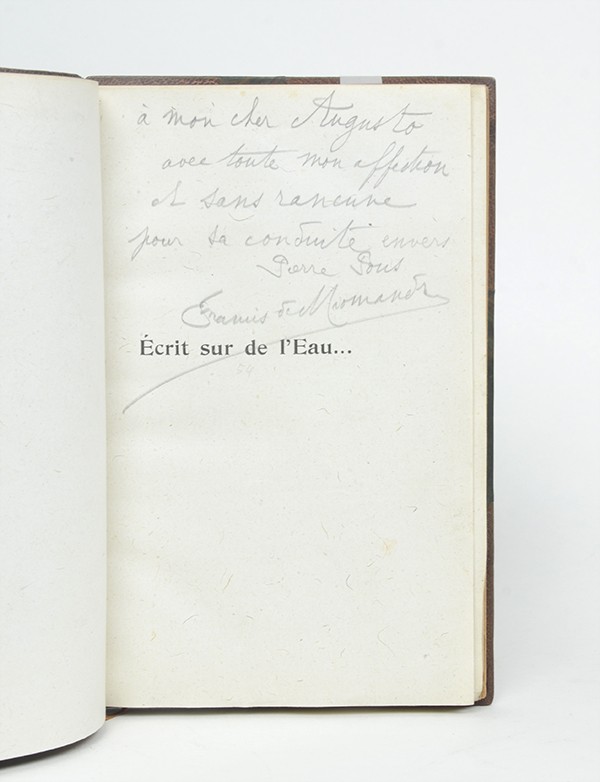 à mon cher Augusto
avec toute mon affection
et sans rancune
pour sa conduite envers
Pierre Pons
Francis de Miomandre
Écrit sur de l'Eau...